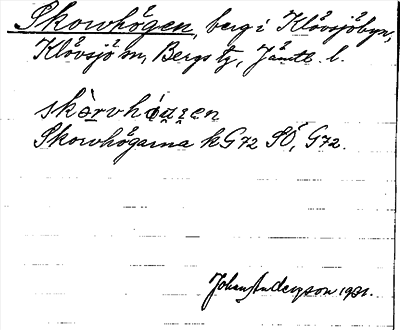 Skorvhögen, berg i Klövsjöbyn,
Klövsjö sn, Bergs tg, Jämtl. l.
skòrvhö́gen
Skorvhögarna kG72 SÖ, G72.
Johan Anderson 1931.